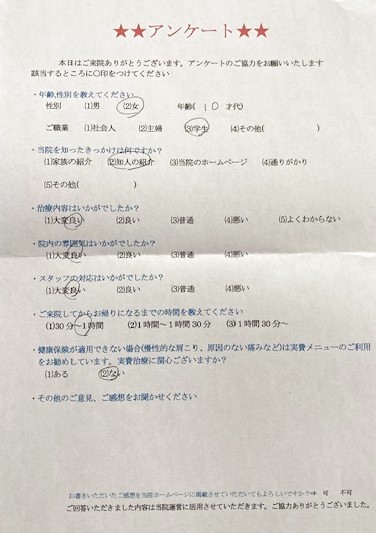 ★★アンケート★★
本日はご来院ありがとうございます。アンケートのご協力をお願いいたします
該当するところに〇印をつけてください
・年齢,性別を教えてください
性別 (1)男 (2)女 年齢( 10 才代)
ご職業 (1)社会人 (2)主婦 (3)学生 (4)その他( )
・当院を知ったきっかけは何ですか?
(1)家族の紹介 (2)知人の紹介 (3)当院のホームページ (4)通りがかり
(5)その他( )
・治療内容はいかがでしたか?
(1)大変良い (2)良い (3)普通 (4)悪い (5)よくわからない
・院内の雰囲気はいかがでしたか?
(1)大変良い (2)良い (3)普通 (4)悪い
・スタッフの対応はいかがでしたか?
(1)大変良い (2)良い (3)普通 (4)悪い
・ご来院してからお帰りになるまでの時間を教えてください
(1)30分~1時間 (2)1時間~1時間30分 (3)1時間30分~
・健康保険が適用できない場合(慢性的な肩こり、原因のない痛みなど)は実費メニューのご利用
をお勧めしています。実費治療に関心ございますか?
(1)ある (2)ない
・その他のご意見、ご感想をお聞かせください
お書きいただいたご感想を当院ホームページに掲載させていただいてもよろしいですか?⇒ 可 不可
ご回答いただきました内容は当院運営に活用させていただきます。ご協力ありがとうございました。